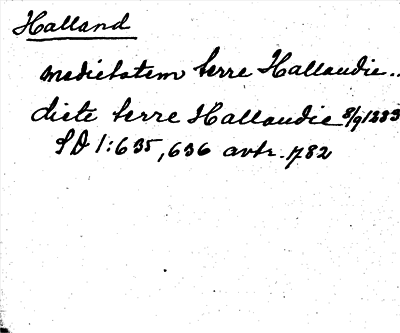 Halland
medietatem terre Hallandie..
dicte terre Hallandie 8/9 1283
SD 1:635, 636 avtr. 1782